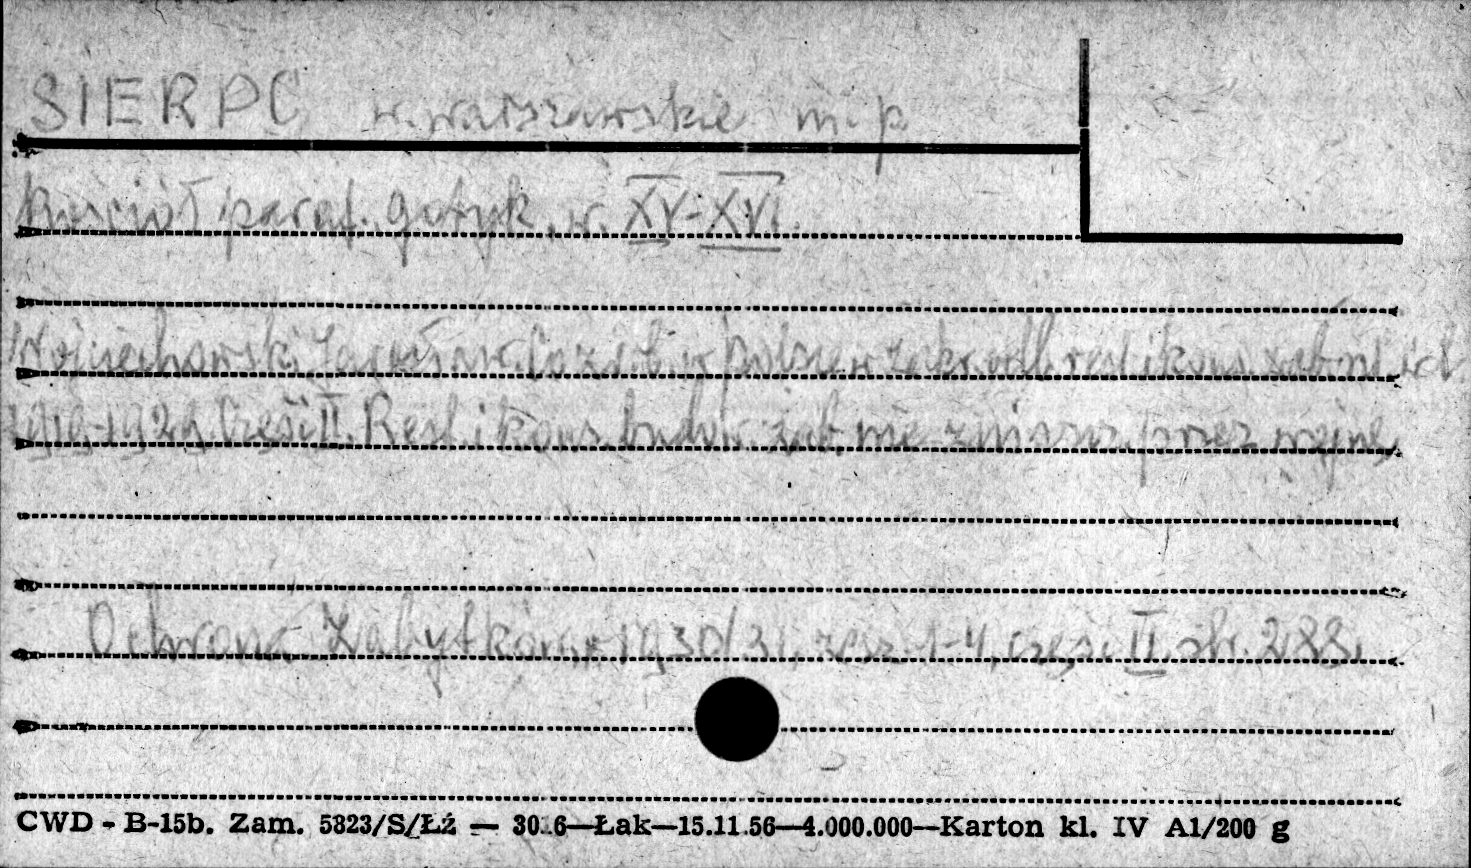 SIERPC w. warszawskie m. p
Kościół paraf. gotyk. w. XV-XVI.
Wojciechowski Jarosław. w Polsce w zakr. odb. rest. i kons. zab. nieruch
1919-1929. Część II. Rest. i kons. budow. zab. nie zniszcz. przez wojnę
Ochrona Zabytków. 1930/31, zesz. 1-4, część II str. 288.
CWD - B-15b. Zam. 5823/S/Łź — 30.6—Łak—15.11.56—4.000.000—Karton kl. IV A1/200 g